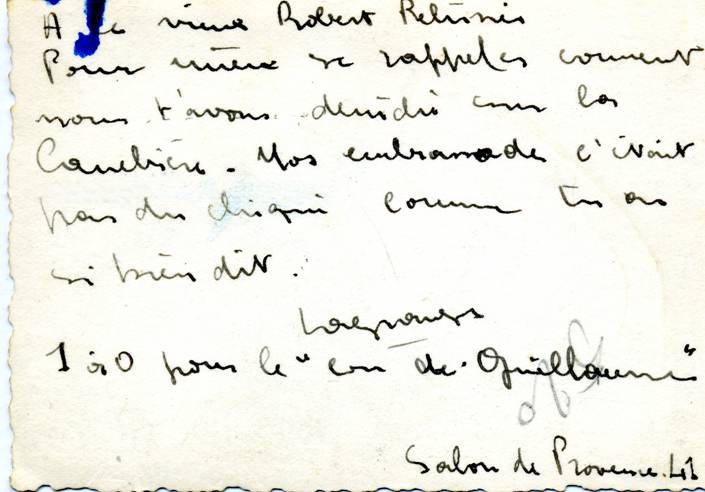 A ce vieux Robert
Pour mieux se rappeler comment
nous t'avons décidé sur la
Canebière. Nos embrassades c'était
pas du chiqué comme tu as
si bien dit.
1 à 0 pour le " con de Guillaume "
Salon de Provence. 41